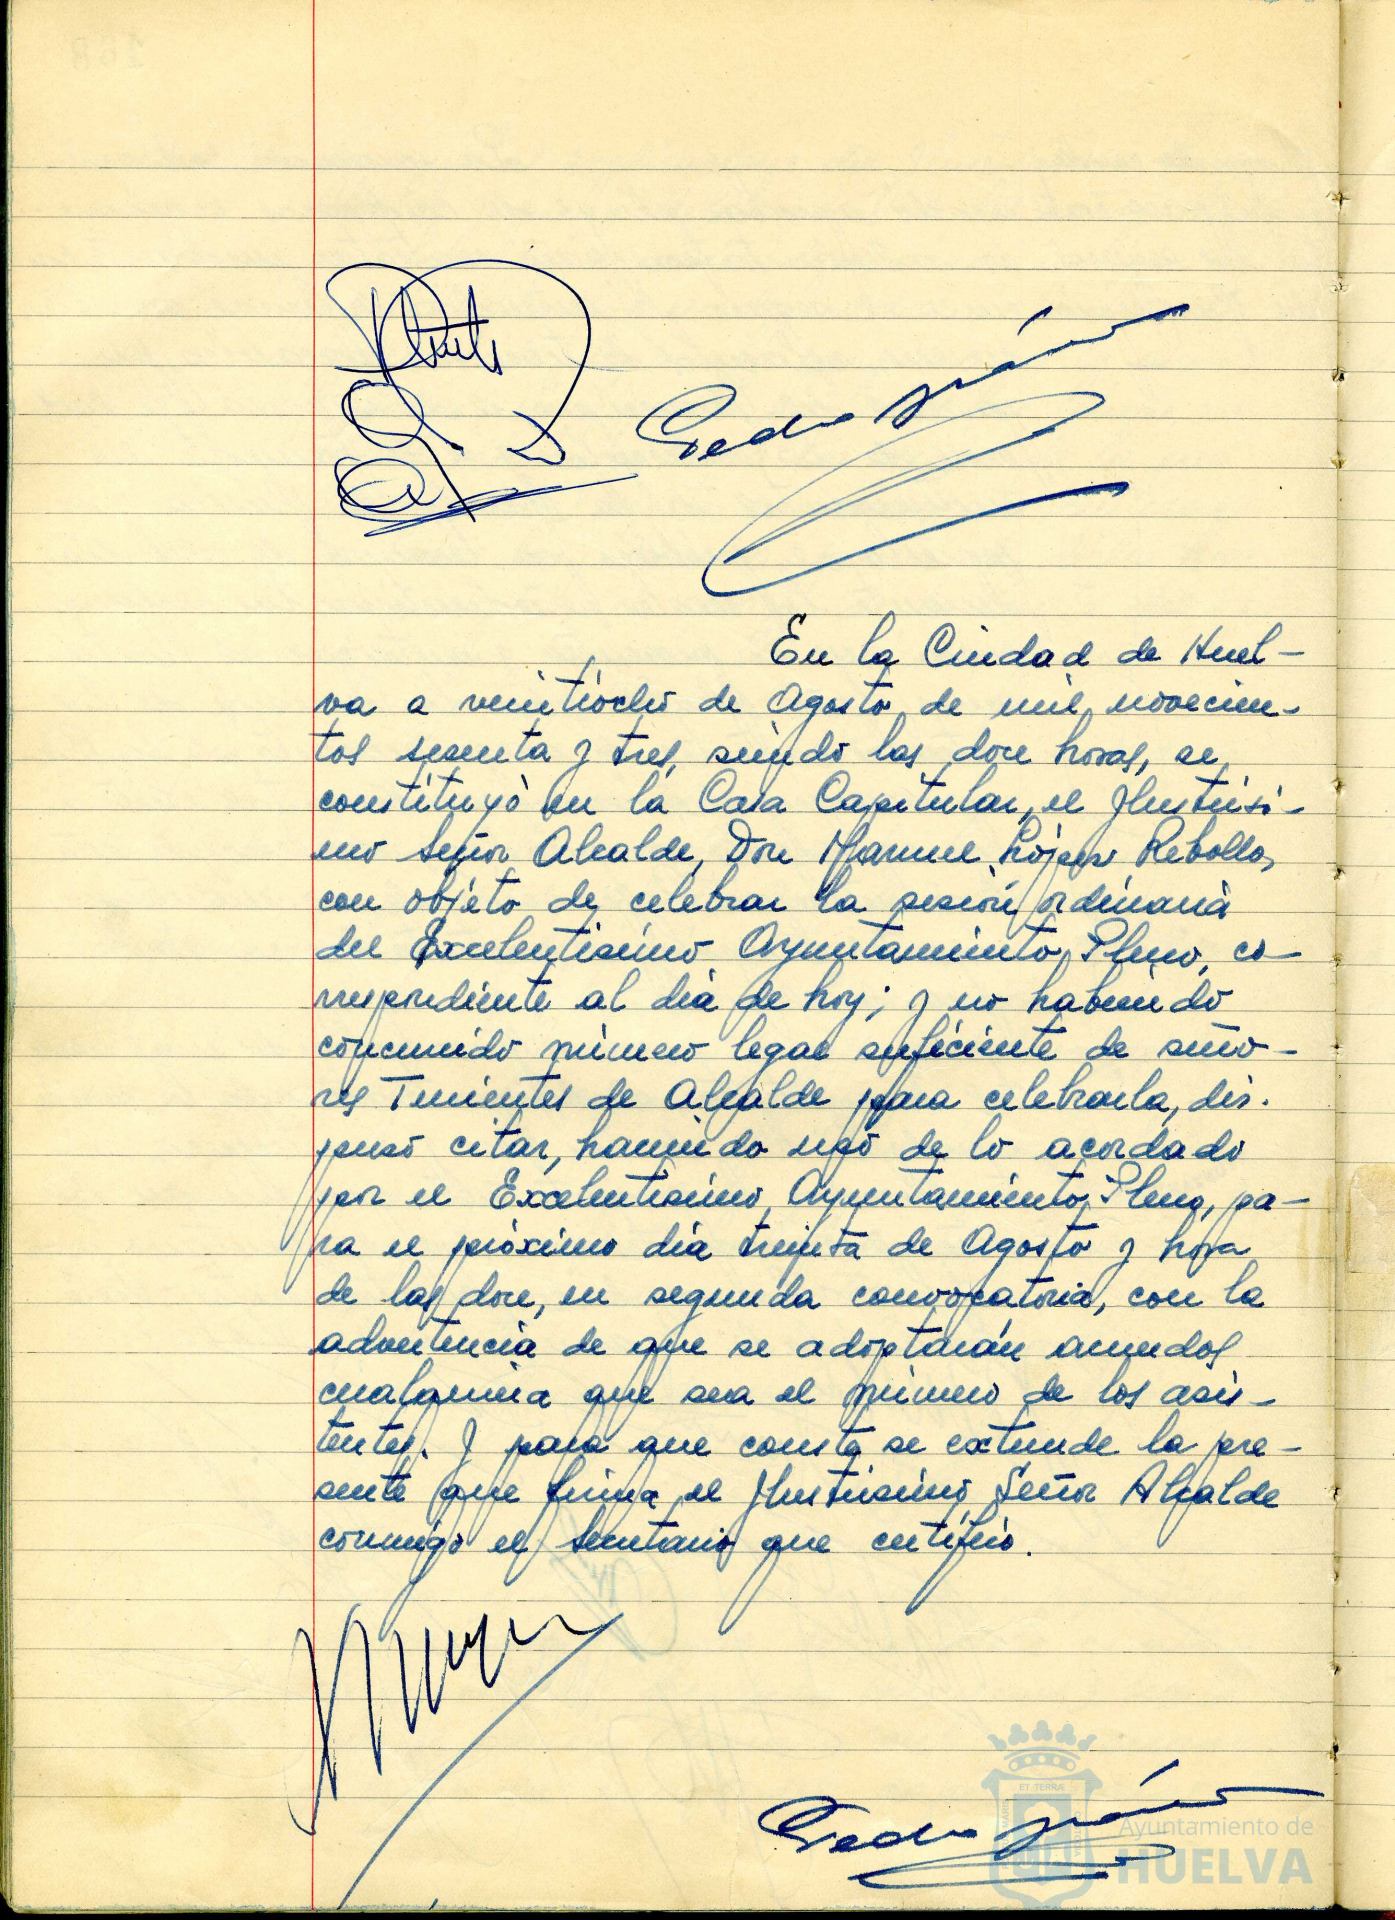 Pedro
En la Ciudad de Huel-
va a veintiocho de Agosto de mil novecien-
tos sesenta y tres, siendo las doce horas, se
constituyó en la Casa Capitular, el Ilustrísi-
mo Señor Alcalde, Don Manuel López Rebollo,
con objeto de celebrar la sesión ordinaria
del Excelentísimo Ayuntamiento Pleno, co-
rrespondiente al día de hoy; y no habiendo
concurrido número legal suficiente de seño-
res Tenientes de Alcalde para celebrarla, dis-
puso citar, haciendo uso de lo acordado
por el Excelentísimo Ayuntamiento Pleno, pa-
ra el próximo día treinta de Agosto y hora
de las doce, en segunda convocatoria, con la
advertencia de que se adoptarán acuerdos
cualquiera que sea el número de los asis-
tentes. Y para que conste se extiende la pre-
sente que firma el Ilustrísimo Señor Alcalde
conmigo el Secretario que certifico.
Pedro
ET TERRÆ
Ayuntamiento de
HUELVA